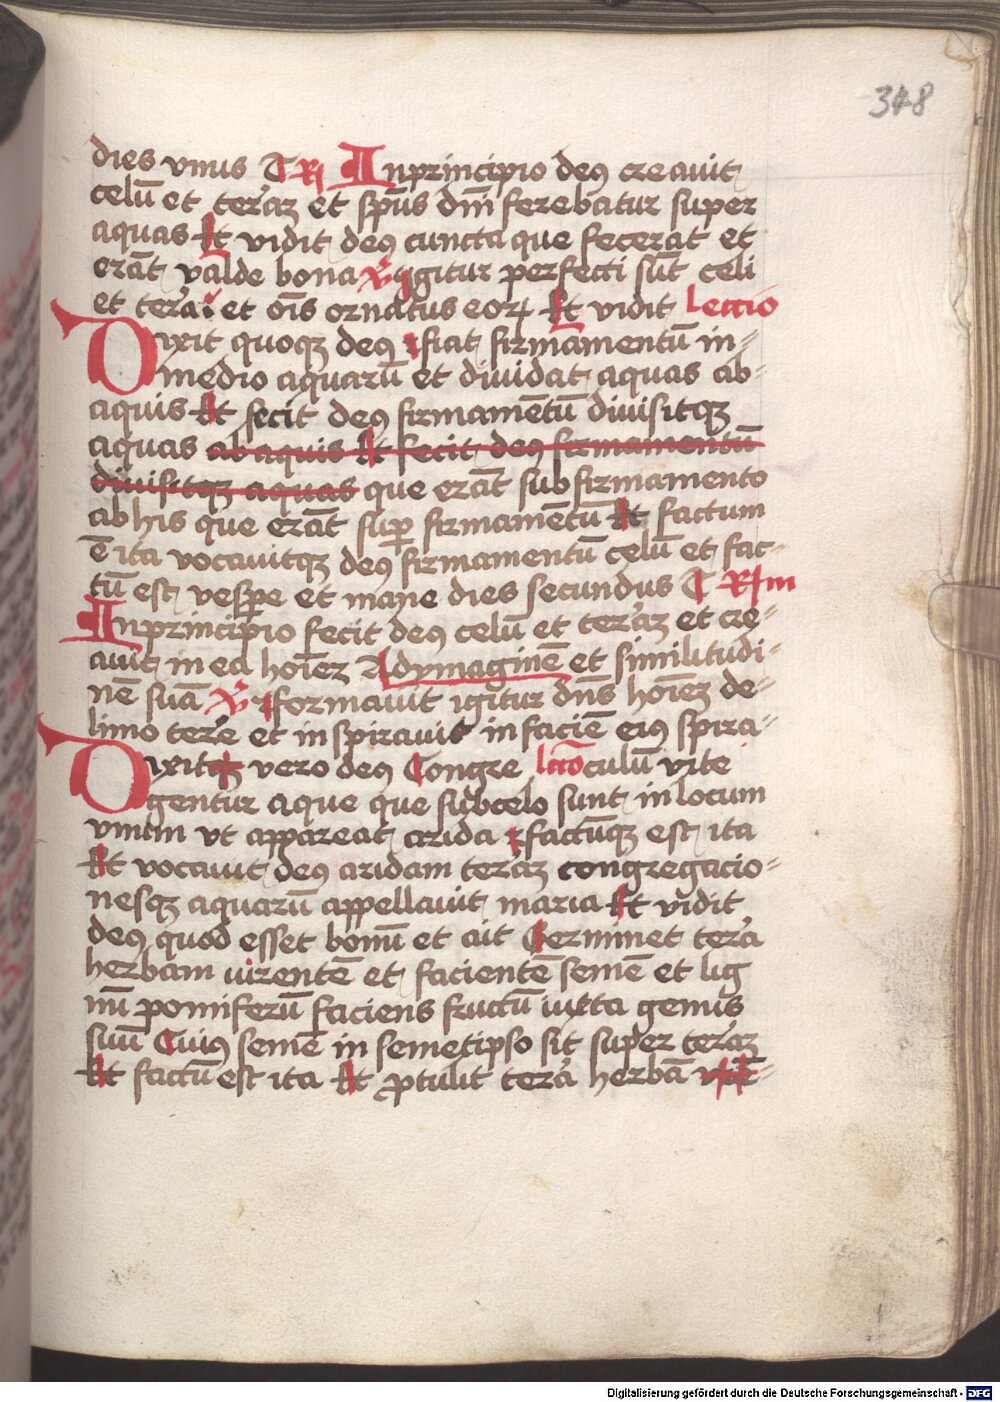 348
dies vnus T Rꝭ Inprincipio deꝰ creauit
celū et terᷓaꝫ et sp̄us dn̄i ferebatur super
aquas Et vidit deꝰ cuncta que fecerat et
erāt valde bona V̄ Igitur perfecti sūt celi
et terᷓa et oīs ornatus eoꝝ Et vidit Lectio
Dixit quoqꝫ deꝰ fiat firmamentū in-
medio aquarū et diuidat aquas ab-
aquis Et fecit deꝰ firmamētū diuisitqꝫ
aquas ab aquis Et fecit deꝰ firmamentū
diuisitqꝫ aquas que erāt sub firmamento
ab his que erāt suꝑ firmamētū Et factum
ē ita vocauitqꝫ deꝰ firmamentū celū et fac-
tū est vesꝑe et mane dies secundus T Rm
Inprincipio fecit deꝰ celū et terᷓaꝫ et cre-
auit in ea hoīeꝫ Ad ymaginē et similitudi-
nē suā V̄ formauit igitur dn̄s hoīeꝫ de-
limo terᷓe et inspirauit in faciē eiꝰ spira-
Dixit vero deꝰ Congre lcᷓo culū vite
gentur aque que subcelo sunt in locum
vnum vt appareat arida factūqꝫ est ita
Et vocauit deꝰ aridam terᷓaꝫ congregacio-
nesqꝫ aquarū appellauit maria Et vidit
deꝰ quod esset bonū et ait Germinet terᷓa
herbam uirentē et facientē semē et lig
nū pomiferū faciens fructū iuxta genus
suū Cuiꝰ semē in semetipso sit super terᷓaꝫ
Et factū est ita Et ꝓtulit terᷓa herbā
Digitalisierung gefördert durch die Deutsche Forschungsgemeinschaft - DFG